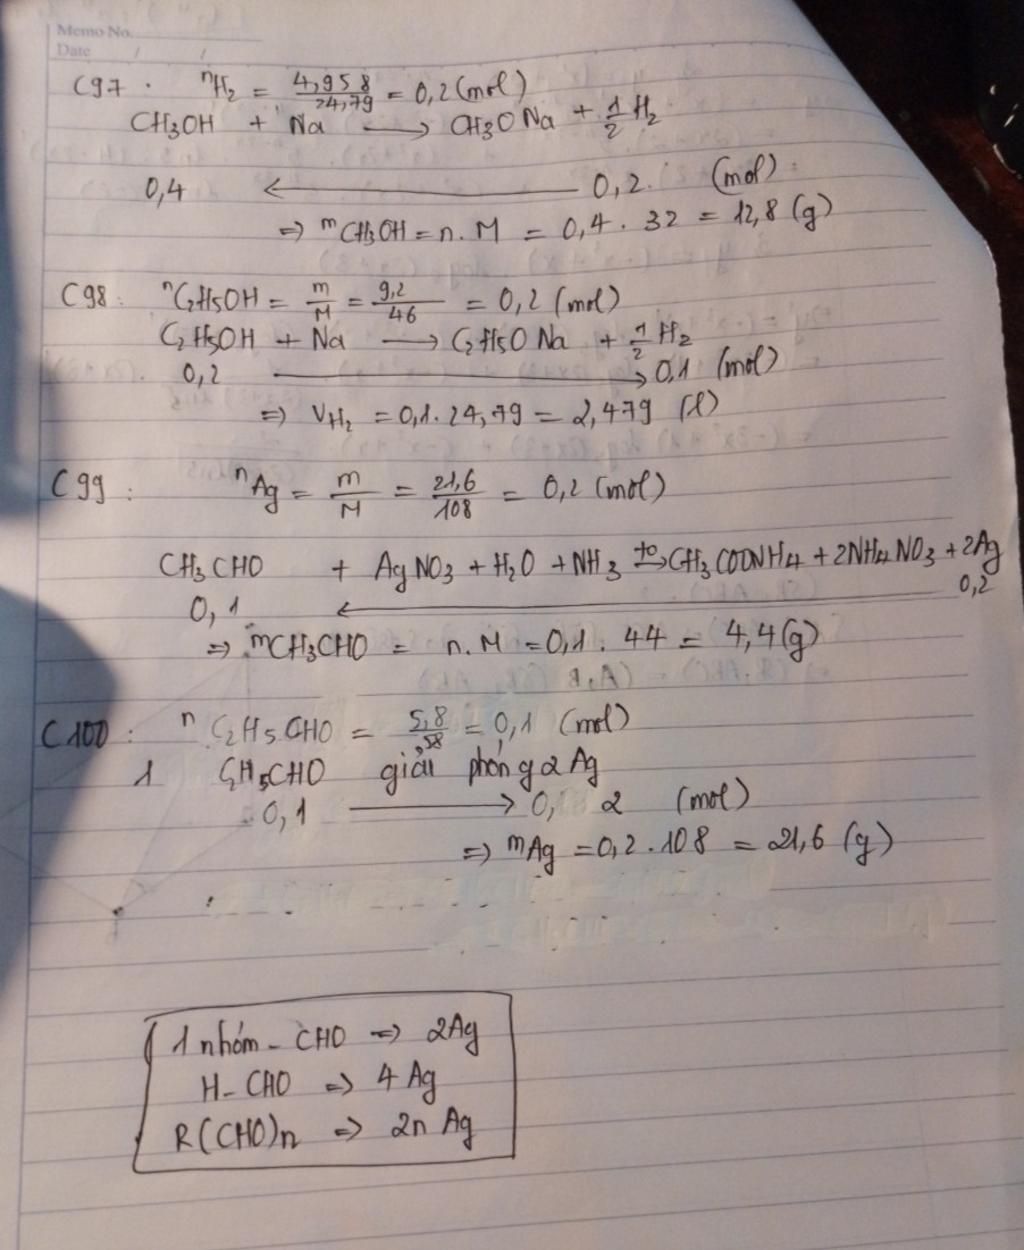 Memo No.
Date / /
C97. nH2 = 4,958/24,79 = 0,2 (mol)
CH3OH + Na → CH3ONa + 1/2 H2
0,4 ← 0,2. (mol)
=> mCH3OH = n. M = 0,4 . 32 = 12,8 (g)
C98: nC2H5OH = m/M = 9,2/46 = 0,2 (mol)
C2H5OH + Na → C2H5ONa + 1/2 H2
0,2 → 0,1 (mol)
=> VH2 = 0,1. 24,79 = 2,479 (l)
C99: nAg = m/M = 21,6/108 = 0,2 (mol)
CH3CHO + AgNO3 + H2O + NH3 to→ CH3COONH4 + 2NH4NO3 + 2Ag
0,1 ← 0,2
=> mCH3CHO = n. M = 0,1. 44 = 4,4(g)
C100: n C2H5CHO = 5,8/58 = 0,1 (mol)
1 C2H5CHO giải phóng 2Ag
0,1 → 0, 2 (mol)
=> mAg = 0,2.108 = 21,6 (g)
1 nhóm - CHO => 2Ag
H - CHO => 4 Ag
R(CHO)n => 2n Ag